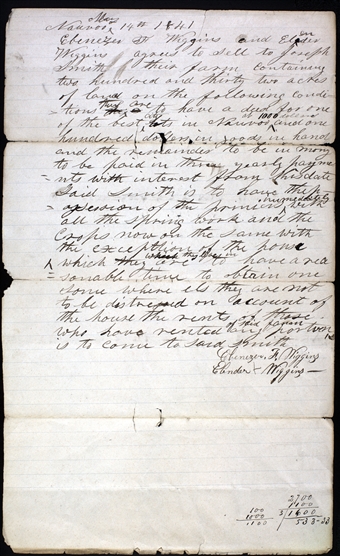 May
Nauvoo 14th 1841
Ebenezer F Wiggins and Elender
Wiggins agrees to sell to Joseph
Smith their farm containing
two hundred and thirty two acres
of land on the following condi-
tions they are to have a deed for one
of the best lots in Nauvoo at 1000 dollars and one
hundred dollars in goods in hand
and the remainder to be in mon
to be paid in three yearly payme
nts with interest from this date
Said Smith is to have the p-
ossession of the premises immediately with
all the spring work and the
Crops now on the same with
the exception of the house
which they live in to have a rea
sonable time to obtain one
some where els they are not
to be distressed on account of
the house the rents of those
who have rented any portion of said farm
is to come to said Smith
Ebenezer F Wiggins
Elender Wiggins
2700
1100
3 1600
533-33
100
1000
1100